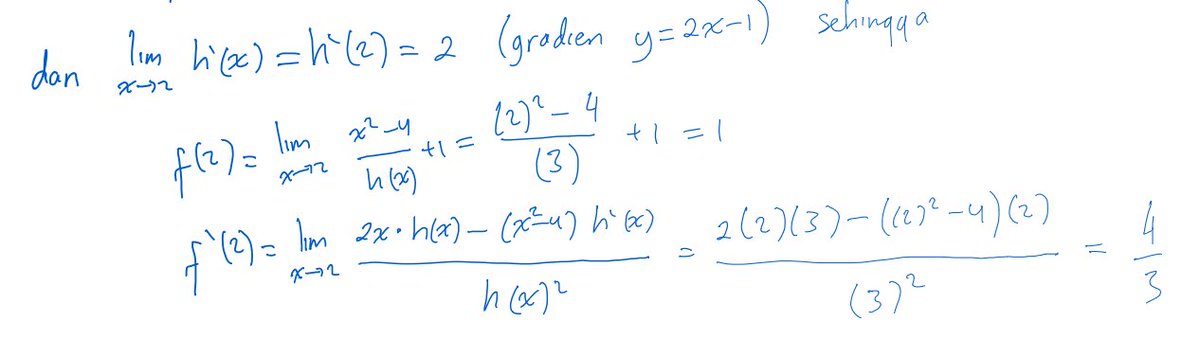 dan lim x→2 h`(x) = h`(2) = 2 (gradien y = 2x-1) sehingga
f(2) = lim x→2 x²-4 / h(x) +1 = (2)² - 4 / (3) + 1 = 1
f`(2) = lim x→2 2x · h(x) - (x²-4) h`(x) / h(x)² = 2(2)(3) - ((2)² - 4)(2) / (3)² = 4/3